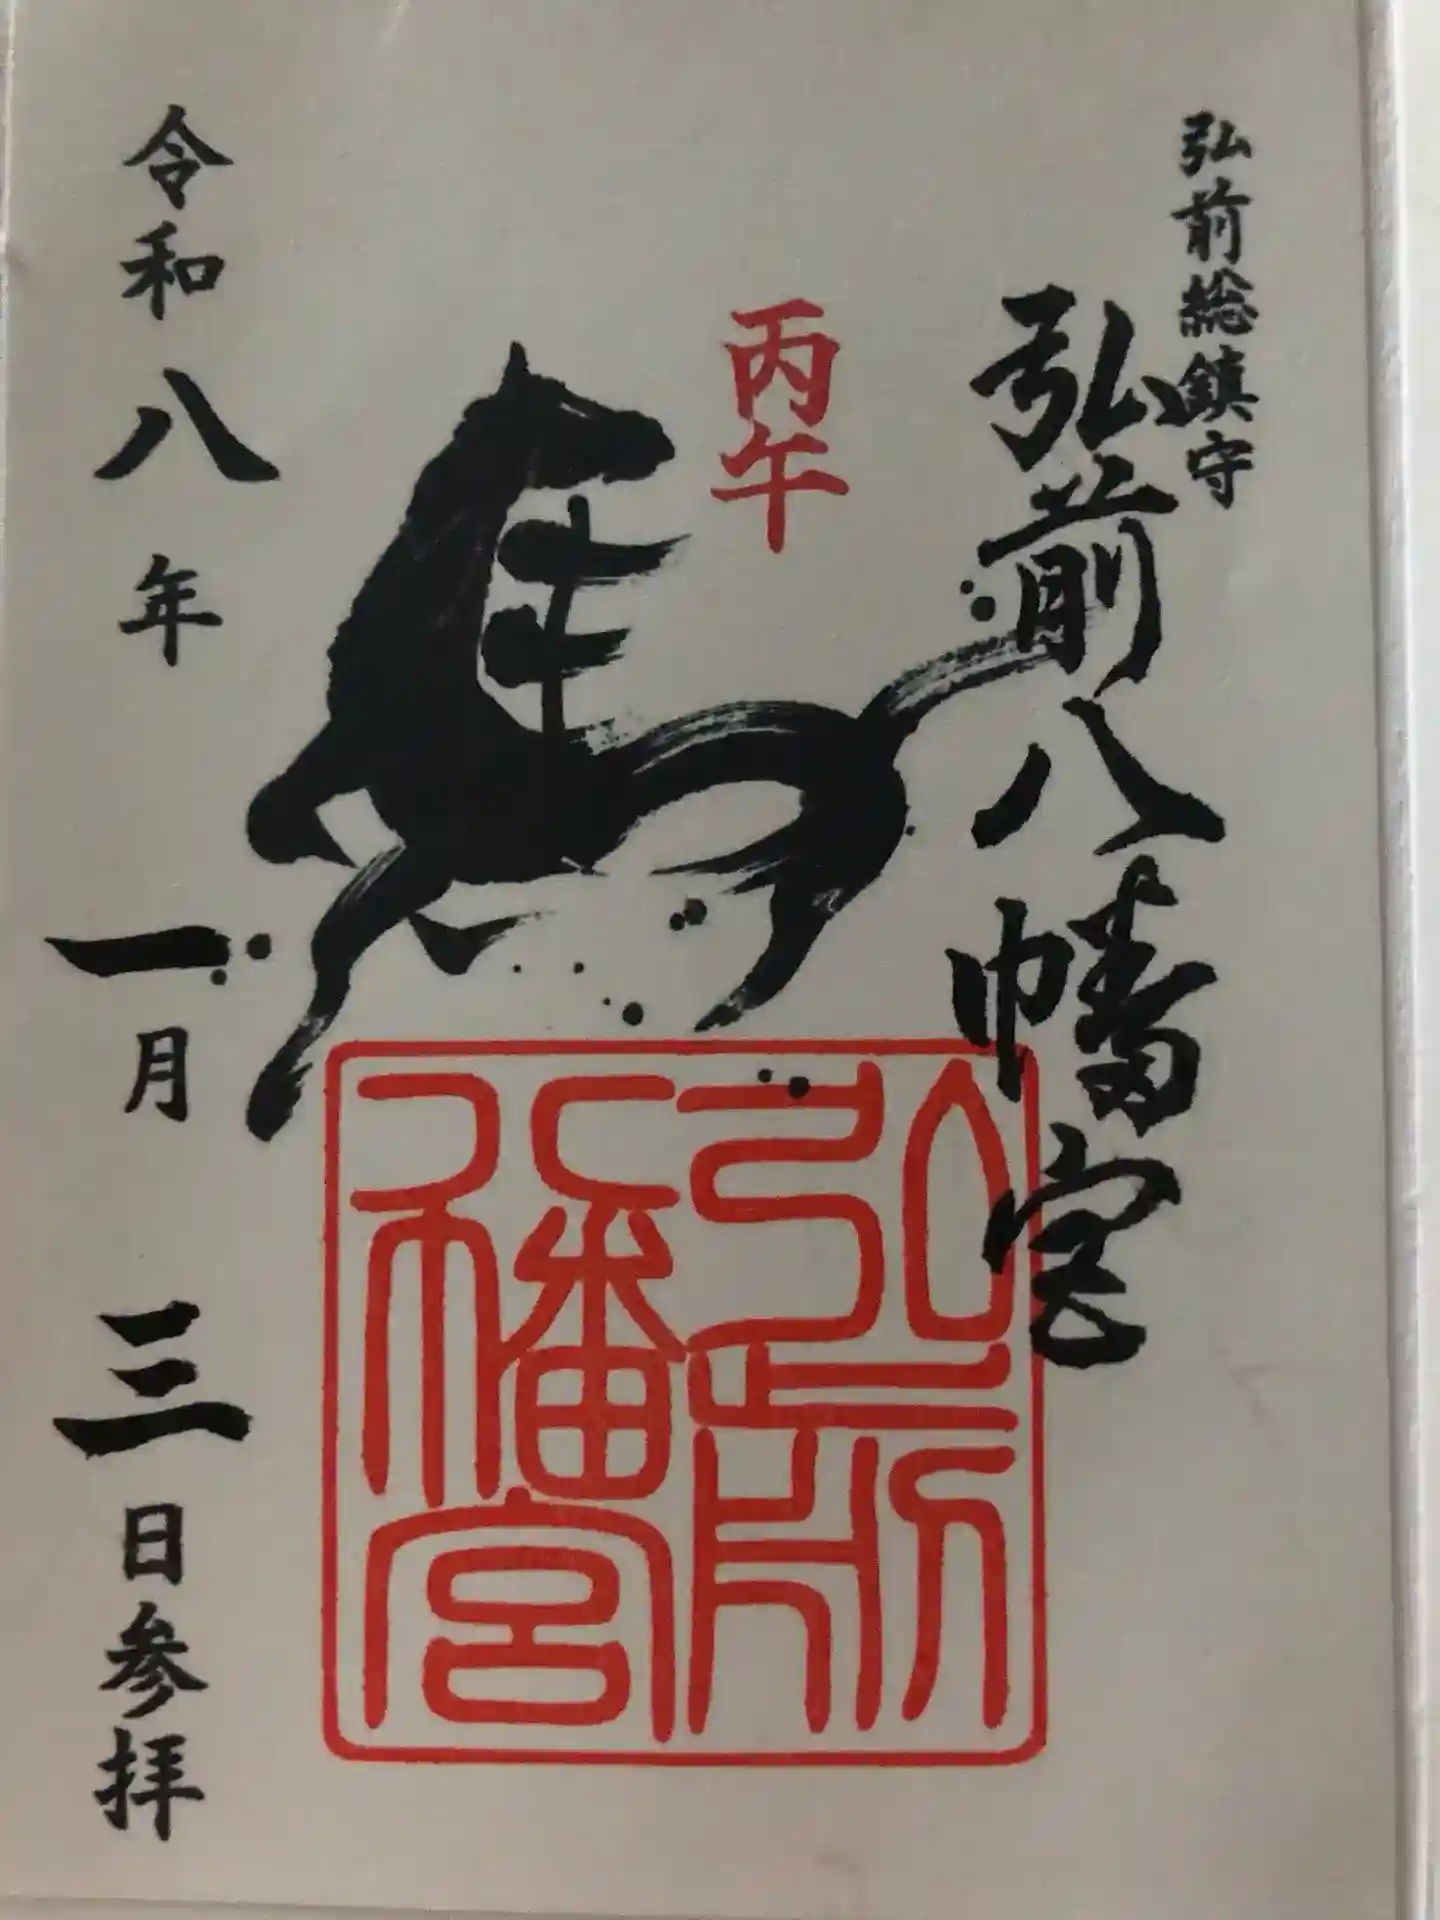 弘前総鎮守
弘前八幡宮
丙午
弘前
八幡宮
令和八年一月三日参拝